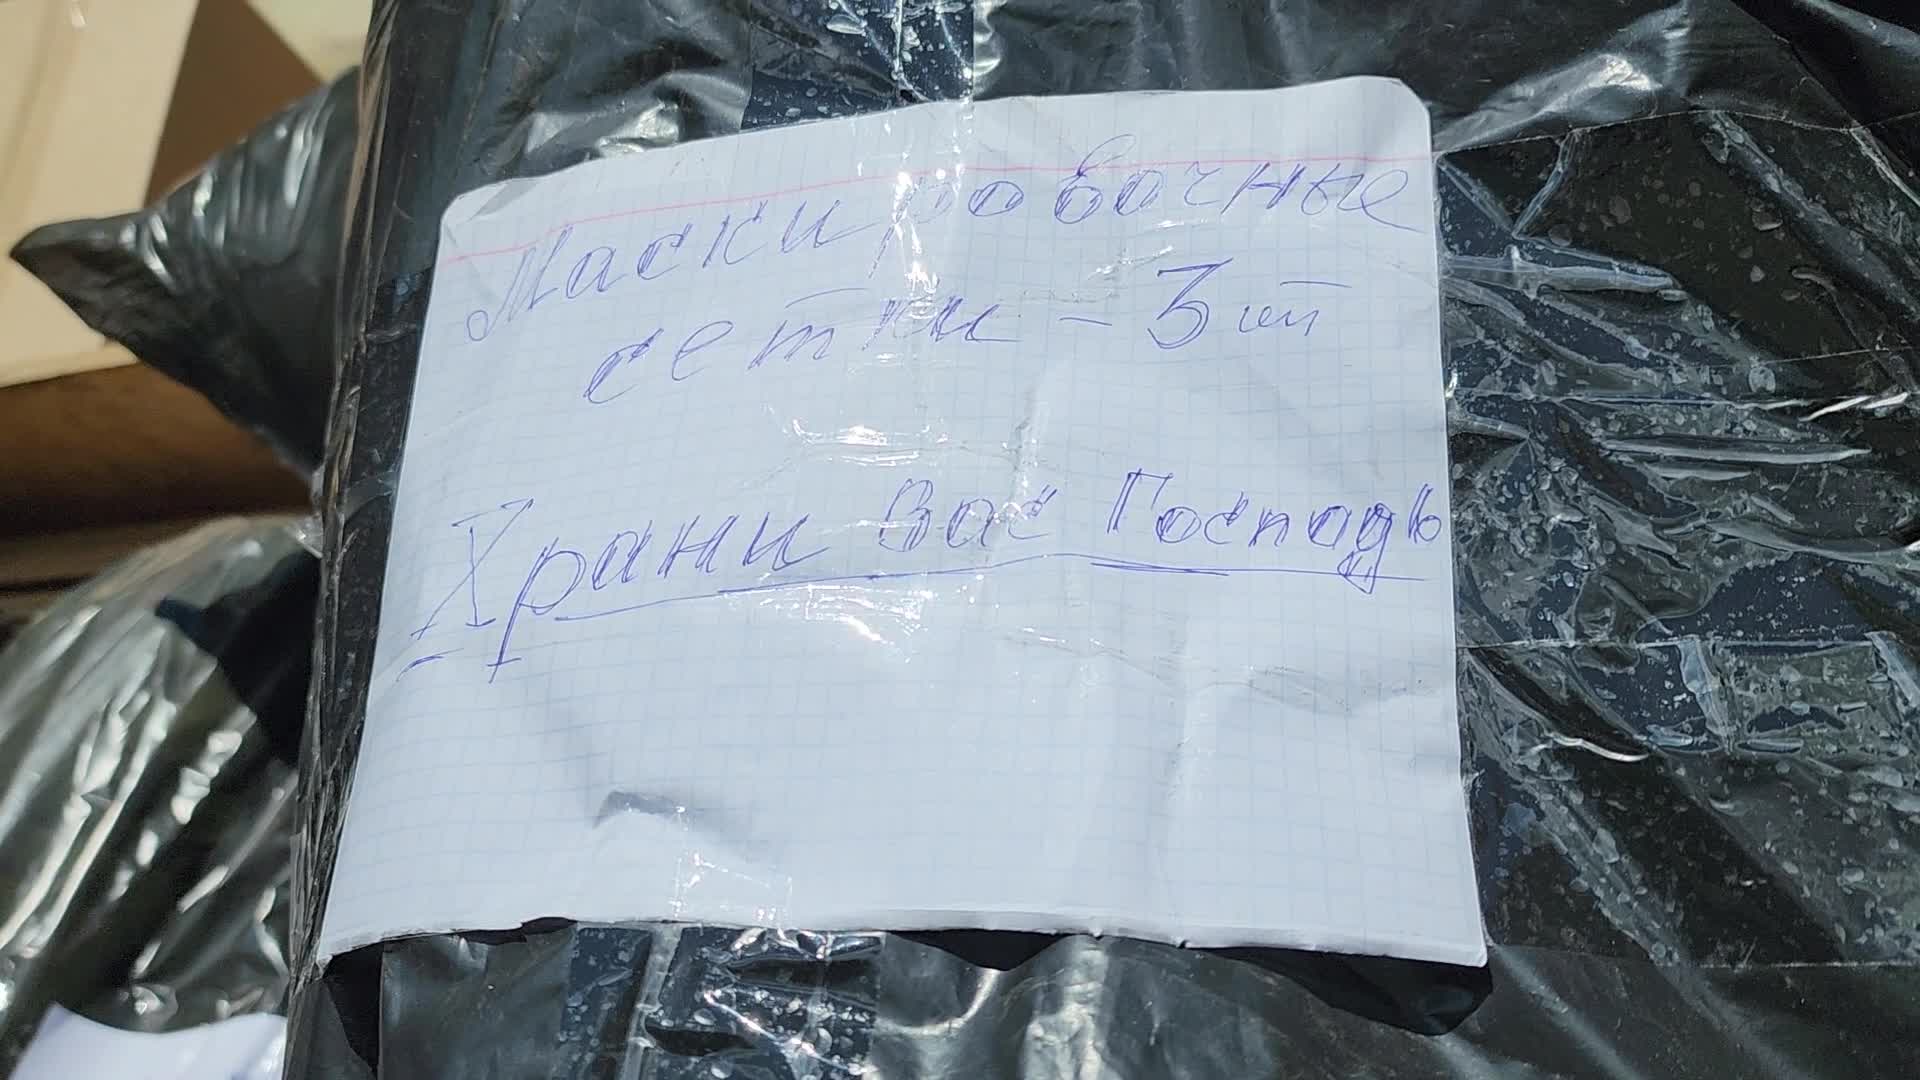 Маскировочные
сетки - 3 шт
Храни вас Господь